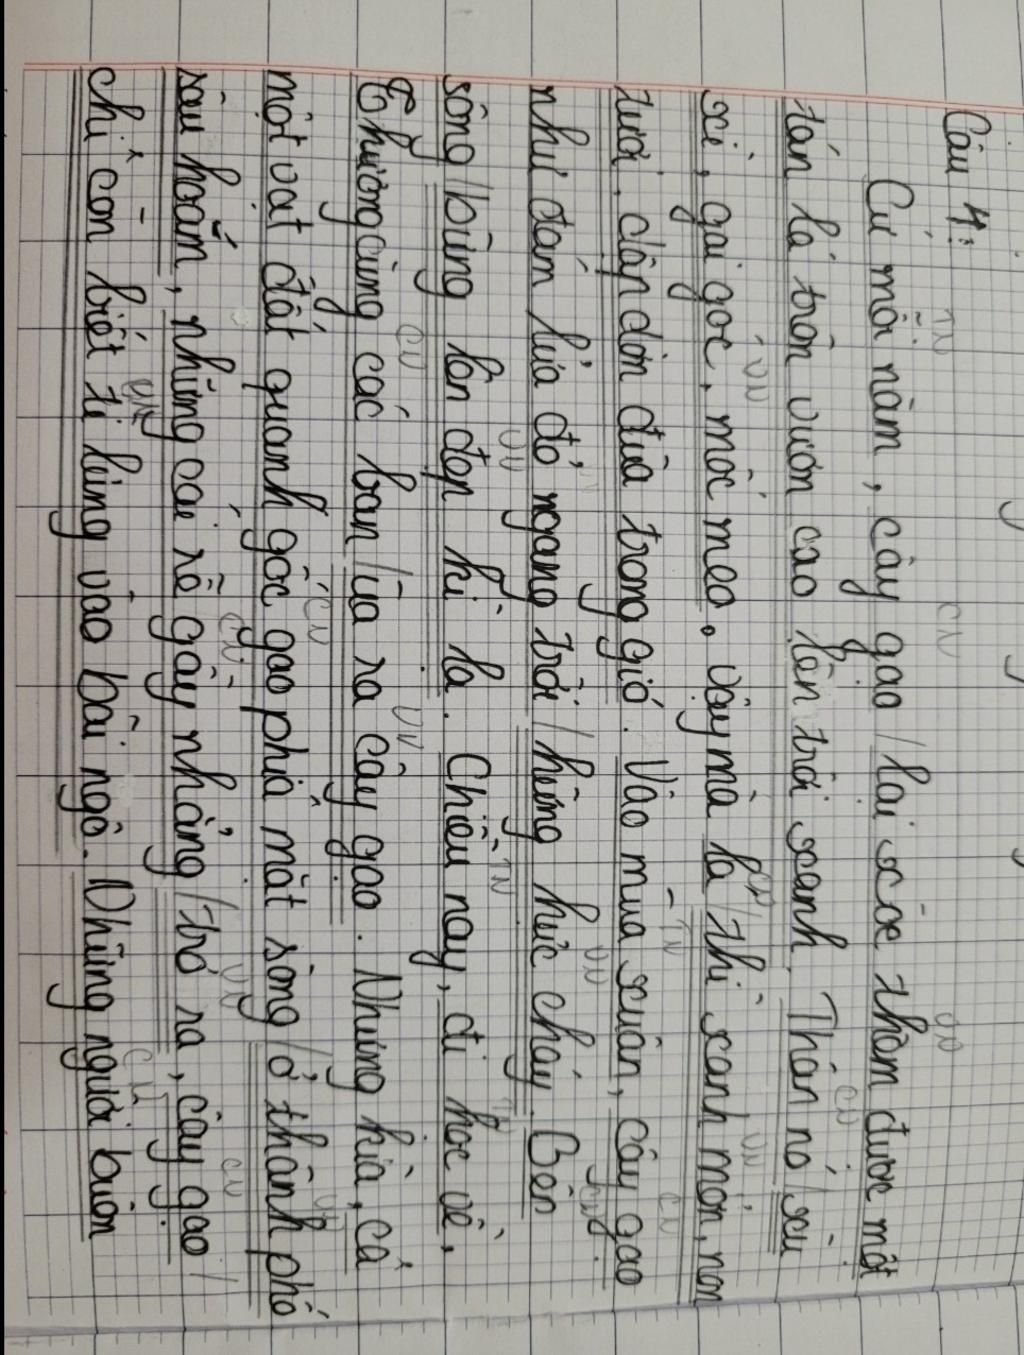 Câu 4:
Cứ mỗi năm, cây gạo / lại xòe thêm được một
tán lá tròn vươn cao lên trời xanh. Thân nó / xù
xì, gai góc, mốc meo. Vậy mà lá / thì xanh mởn, non
tươi, dập dờn đùa trong gió. Vào mùa xuân, cây gạo
như đám lửa đỏ ngang trời / hừng hực cháy. Bến
sông / bừng lên đẹp kì lạ. Chiều nay, đi học về,
Thương cùng các bạn / ùa ra cây gạo. Nhưng kìa, cả
một vạt đất quanh gốc gạo phía mặt sông / ở thành phố
sâu hoắm, những cái rễ gầy nhẳng / trơ ra, cây gạo /
chỉ còn biết tì lưng vào bãi ngô. Những người buôn